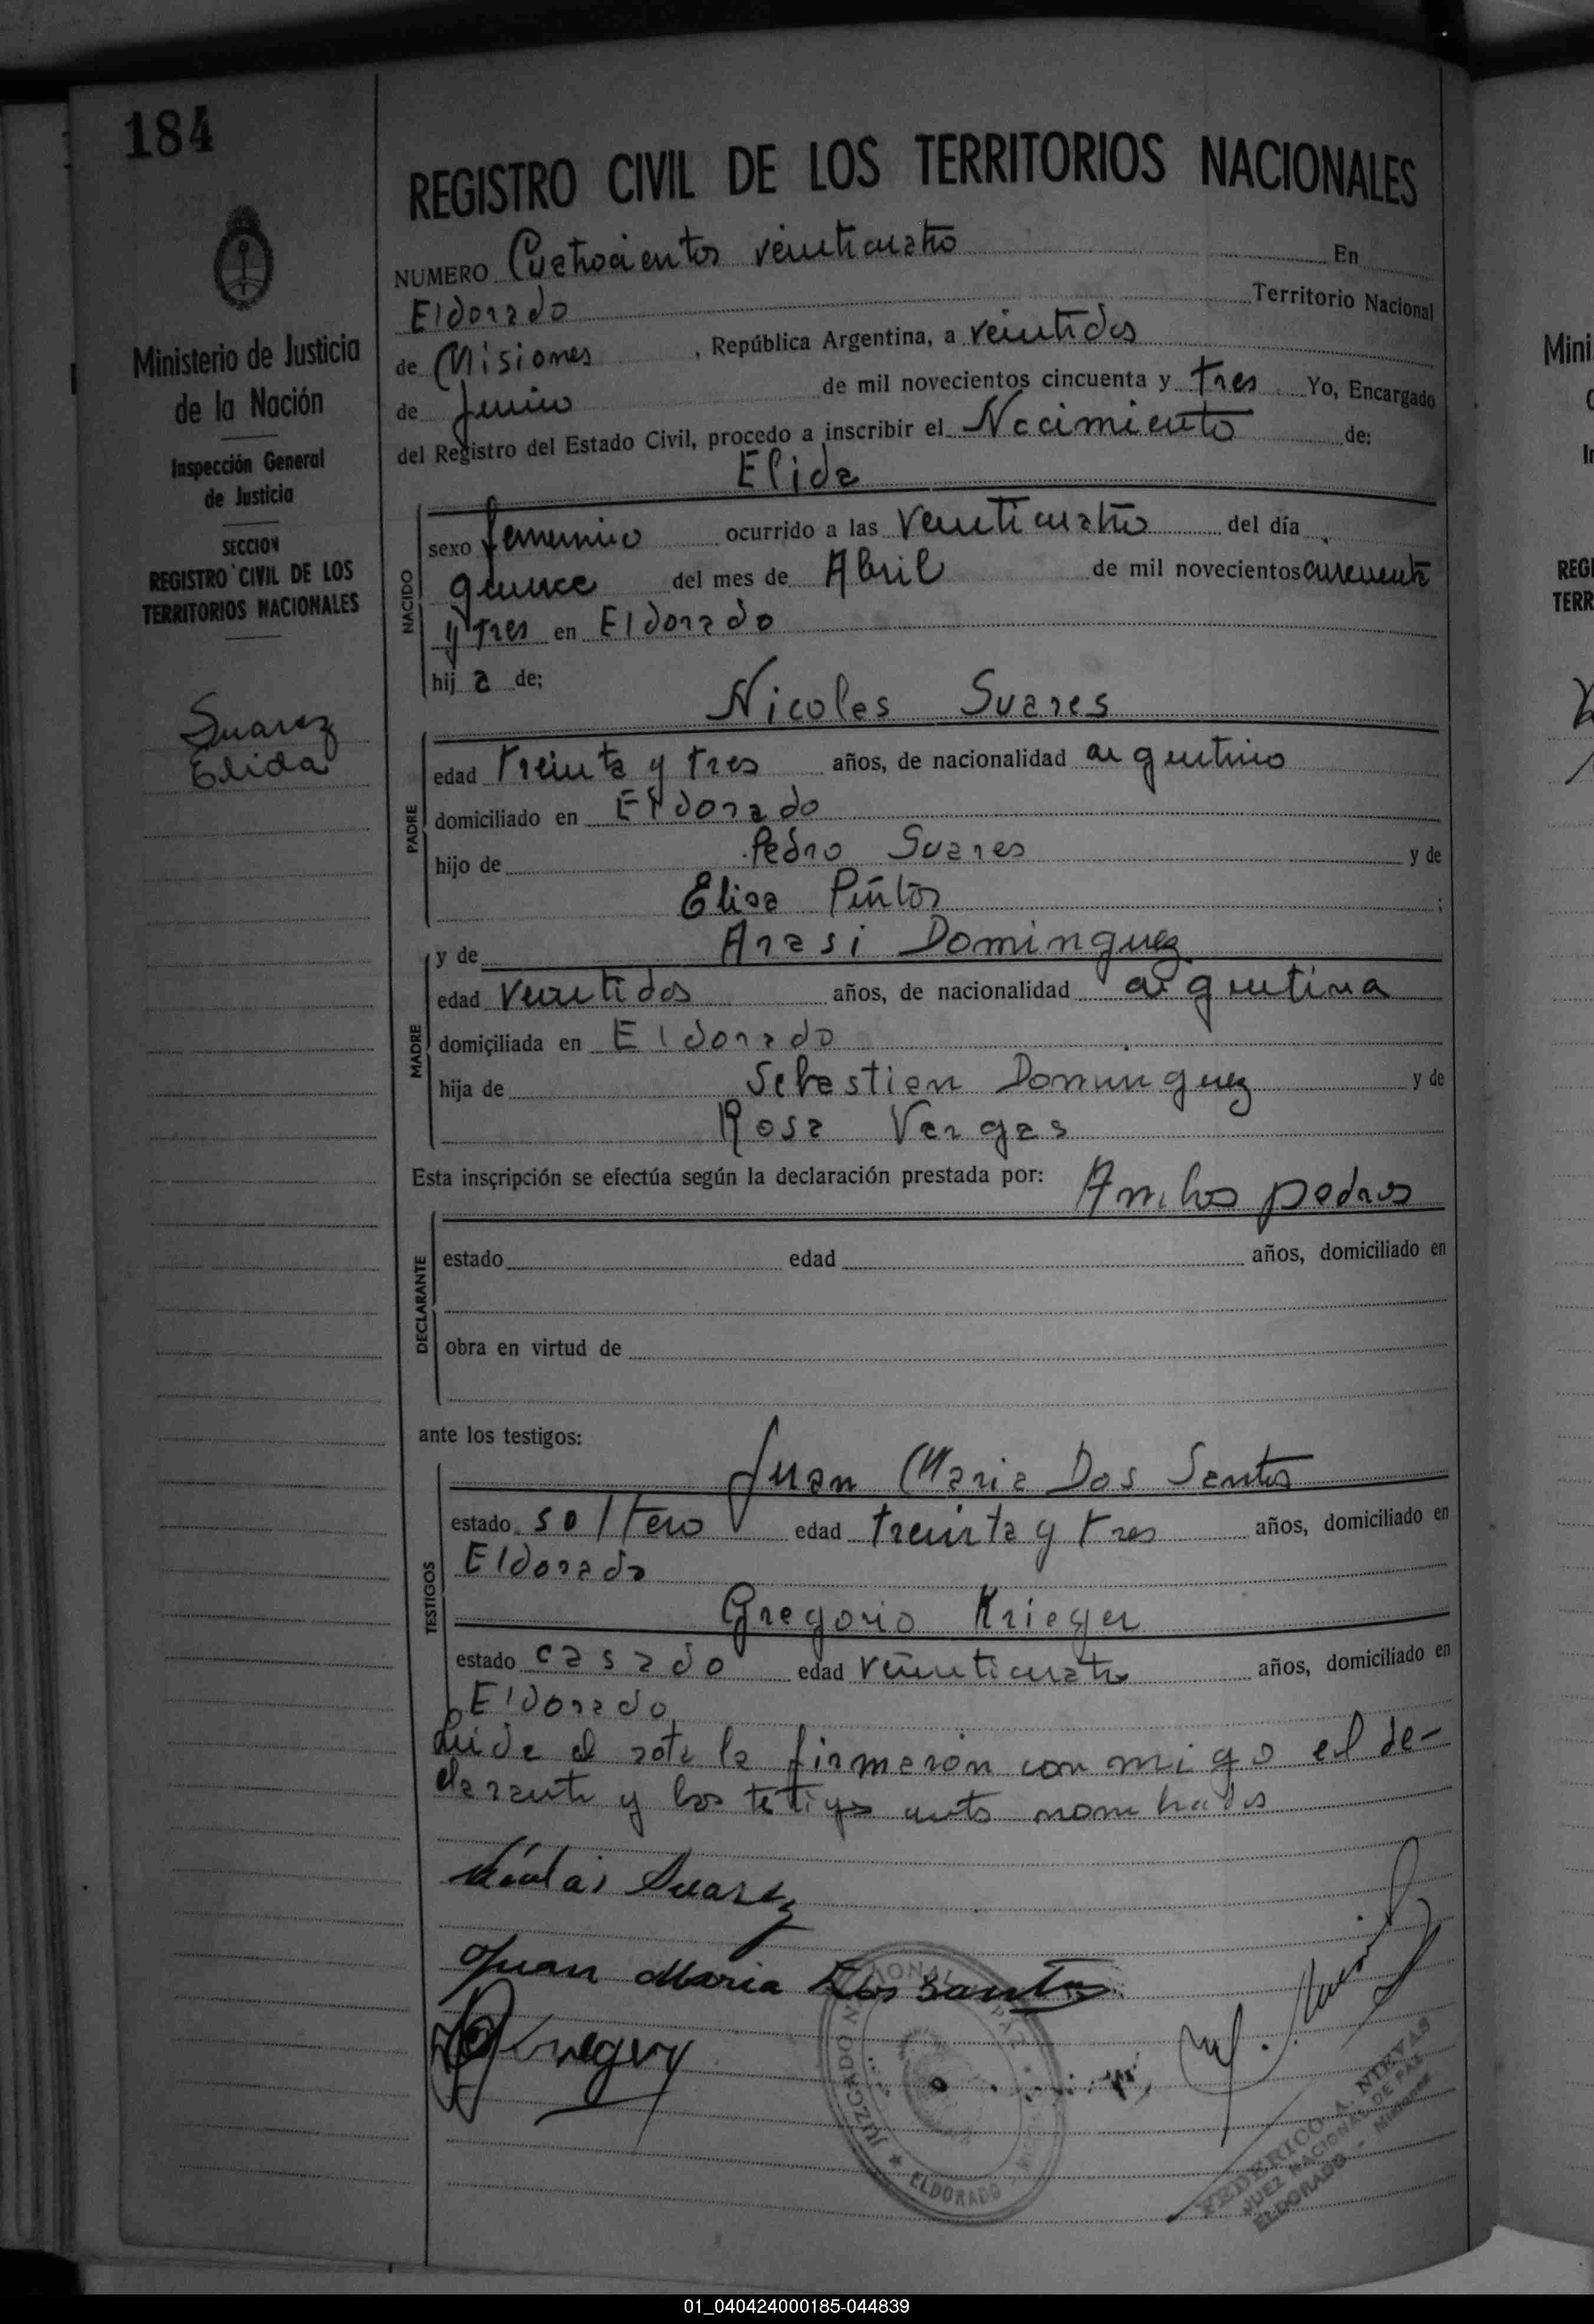 184
REGISTRO CIVIL DE LOS TERRITORIOS NACIONALES
NUMERO Cuatrocientos veinticuatro En
Eldorado Territorio Nacional
de Misiones , República Argentina, a veintidos
de Junio de mil novecientos cincuenta y tres Yo, Encargado
del Registro del Estado Civil, procedo a inscribir el Nacimiento de:
Elida
Ministerio de Justicia
de la Nación
Inspección General
de Justicia
SECCION
REGISTRO CIVIL DE LOS
TERRITORIOS NACIONALES
Suarez
Elida
NACIDO
sexo femenino ocurrido a las veinticuatro del día
quince del mes de Abril de mil novecientos cincuenta
y tres en Eldorado
hij a de;
Nicolas Suares
PADRE
edad treinta y tres años, de nacionalidad argentino
domiciliado en Eldorado
hijo de Pedro Suares y de
Elisa Pintos ;
MADRE
y de Arasi Dominguez
edad veintidos años, de nacionalidad argentina
domiciliada en Eldorado
hija de Sebastian Dominguez y de
Rosa Vargas
Esta inscripción se efectúa según la declaración prestada por: Ambos padres
DECLARANTE
estado edad años, domiciliado en
obra en virtud de
ante los testigos:
TESTIGOS
Juan Maria Dos Santos
estado soltero edad treinta y tres años, domiciliado en
Eldorado
Gregorio Krieger
estado casado edad veinticuatro años, domiciliado en
Eldorado
Leida el acta la firmaron con migo el de-
clarante y los testigos antes nombrados
Nicolas Suarez
Juan Maria Dos Santos
Krieger
JUZGADO ELDORADO
FEDERICO A. NIEVAS
JUEZ NACIONAL DE PAZ
ELDORADO - Misiones
Mini
REGI
TERR
01_040424000185-044839